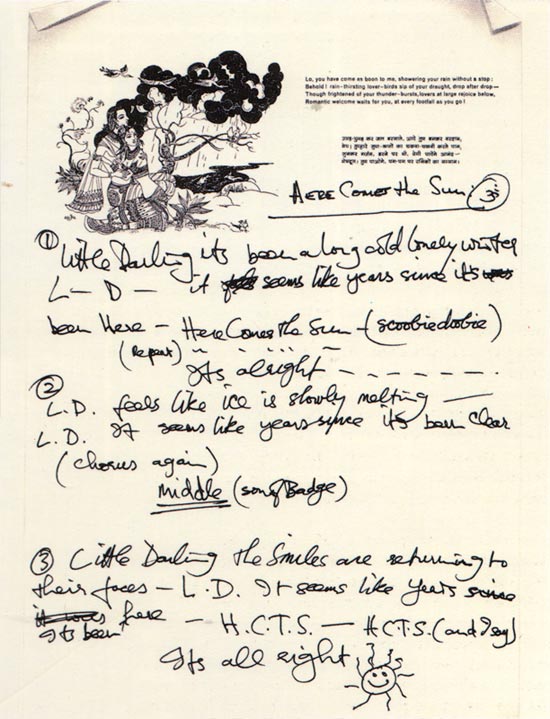 Lo, you have come as boon to me, showering your rain without a stop :
Behold ! rain-thirsting lover-birds sip of your draught, drop after drop—
Though frightened of your thunder-bursts, lovers at large rejoice below,
Romantic welcome waits for you, at every footfall as you go !
Here Comes the Sun. ॐ
① Little Darling its been a long cold lonely winter
L — D — it seems like years since its
been Here — Here Comes the Sun — (scoobiedoobie)
(Repeat) " "
Its alright - - - - - - - .
② L.D. feels like ice is slowly melting —
L.D. It seems like years since its been clear
(chorus again)
Middle (son of Badge)
③ Little Darling the Smiles are returning to
their faces — L.D. It seems like years since
it was here
its been — H.C.T.S. — H.C.T.S. (and I say)
Its all right